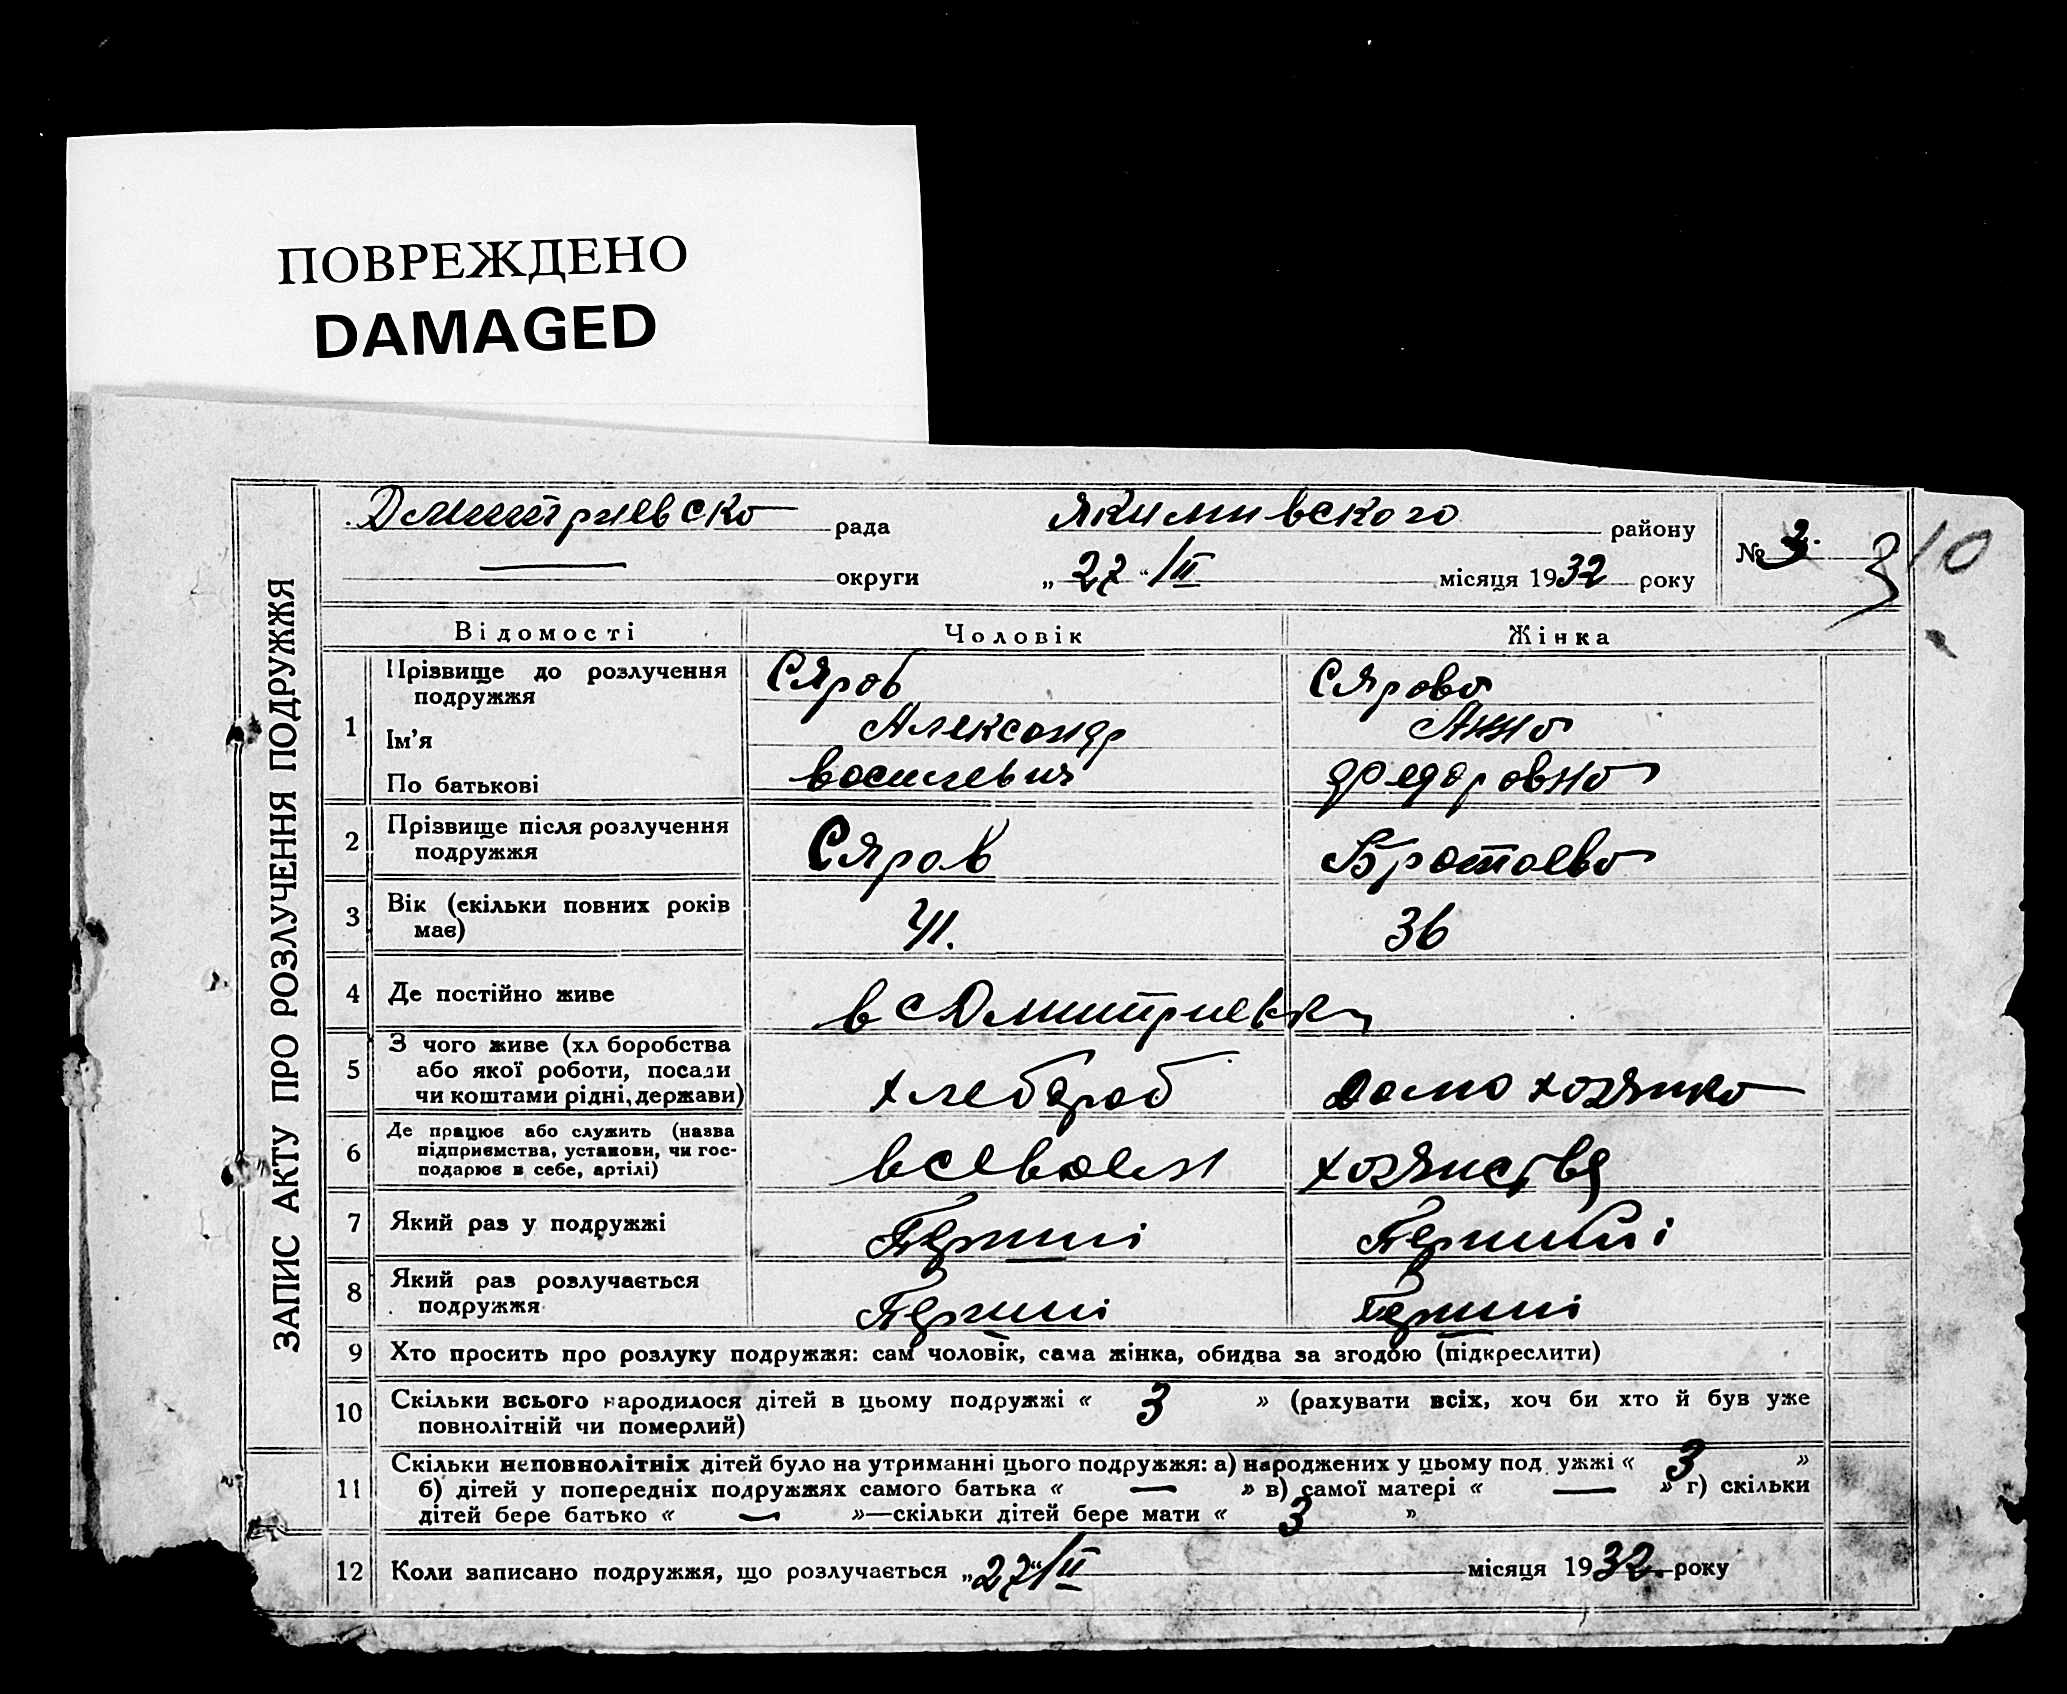 ПОВРЕЖДЕНО
DAMAGED
Дмитриевско рада Якимивского району № 3. 310
округи „27“/II місяця 1932 року
ЗАПИС АКТУ ПРО РОЗЛУЧЕННЯ ПОДРУЖЖЯ
Відомості Чоловік Жінка
1 Прізвище до розлучення подружжя Сяров Сярова
Ім'я Александр Анна
По батькові Василевич Федоровна
2 Прізвище після розлучення подружжя Сяров Братаева
3 Вік (скільки повних років має) 41. 36
4 Де постійно живе в с Дмитриевки
5 З чого живе (хл боробства або якої роботи, посади чи коштами рідні, держави) хлебароб домохозяйка
6 Де працює або служить (назва підприємства, установи, чи господарює в себе, артілі) в своем хозяйстве
7 Який раз у подружжі Перший Перший
8 Який раз розлучається подружжя Перший Перший
9 Хто просить про розлуку подружжя: сам чоловік, сама жінка, обидва за згодою (підкреслити)
10 Скільки всього народилося дітей в цьому подружжі « 3 » (рахувати всіх, хоч би хто й був уже
повнолітній чи померлий)
11 Скільки неповнолітніх дітей було на утриманні цього подружжя: а) народжених у цьому под ужжі « 3 »
б) дітей у попередніх подружжях самого батька « — » в) самої матері « — » г) скільки
дітей бере батько « — »—скільки дітей бере мати « 3 »
12 Коли записано подружжя, що розлучається „27“/II місяця 1932 року